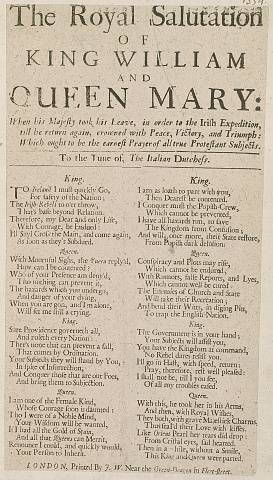 The Royal Salutation
OF
KING WILLIAM
AND
QUEEN MARY:
When his Majesty took his Leave, in order to the Irish Expedition,
till he return again, crowned with Peace, Victory, and Triumph:
Which ought to be the earnest Prayer of all true Protestant Subjects.
To the Tune of, The Italian Dutchess.
King.
TO Ireland I must quickly Go,
For safety of the Nation;
The Irish Rebels to o'er throw,
That's base beyond Relation.
Therefore, my Dear and only Life,
With Courage, be Endued:
I'll Says Cross the Main, and come again,
As soon as they're Subdued.
Queen.
With Mournful Sighs, the Queen reply'd,
How can I be contented?
Was of your Presence deny'd,
No nothing can prevent it,
The hazards which you undergo
And danger of your dying,
When you are gone, and I'm alone,
Will set me still a crying.
King.
Sure Providence governs all,
And rules every Nation:
There's none that can prevent a fall,
That comes by Ordination.
Your Subjects they will stand by You,
In spite of Insurrection,
And Conquer those that are our Foes,
And bring them to Subjection.
Queen.
I am one of the Female Kind,
Whose Courage soon is daunted:
Tho I were of a Noble Mind,
Your Wisdom will be wanted,
If I had all the Gold of Spain,
And all that Queen can Merit,
Renounce I could, and quickly would,
Your Person to Inherit.
King.
I am as loath to part with you,
Then Dearest be contented.
I Conquer must the Popish Crew,
Which cannot be prevented.
I have all hazards run, to save
The Kingdoms from Confusion;
And will, once more, their State restore,
From Popish dark delusion.
Queen.
Conspiracy and Plots may rise,
Which cannot be endured,
With Rumors, false Reports, and Lyes,
Which cannot well be cured:
The Enemies of Church and State
Will take their Recreation;
And bend their Wits, in diging Pits,
To trap the English Nation.
King.
The Government is in your hand,
Your Subjects will assist you,
You have the Kingdom at command,
No Rebel dares resist you.
I'll go in Hast, with speed, return:
Pray, therefore, rest well pleased:
I shall not be, till I you see,
Of all my troubles eased.
Queen.
With this, he took her in his Arms,
And then, with Royal Wishes,
They both, with grave Majestick Charms,
Their Love with kisses.
Like Orient Pearl her tears did drop
From Cristal eyes, all heated.
Then in a without a Smile,
This King and Queen were parted.
LONDON, Printed By J. W. Near the Green-Dragon in Fleet-street.